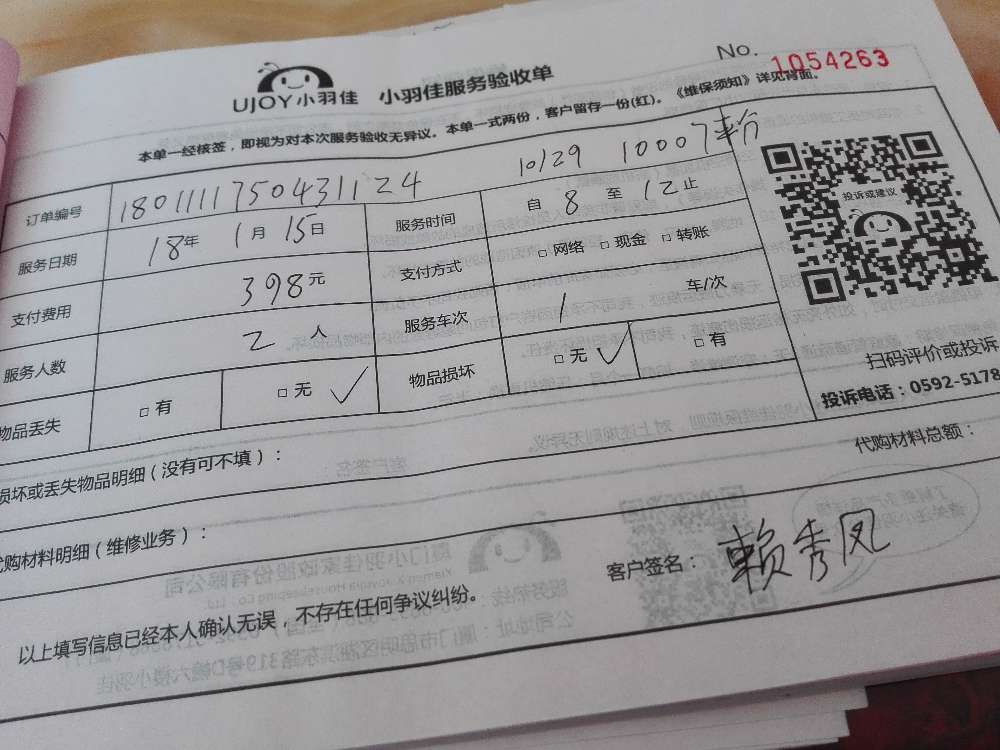 No. 1054263
UJOY小羽佳 小羽佳服务验收单
本单一经核签，即视为对本次服务验收无异议。本单一式两份，客户留存一份(红)。《维保须知》详见背面。
10/29 10007
订单编号 1801111750431124
服务日期 18年 1月 15日 服务时间 自 8 至 12 止
支付费用 398元 支付方式 □网络 □现金 □转账
服务人数 2 人 服务车次 1 车/次
物品丢失 □有 □无 √ 物品损坏 □无 √ □有
投诉或建议
扫码评价或投诉
投诉电话：0592-5178
损坏或丢失物品明细（没有可不填）：
代购材料总额：
代购材料明细（维修业务）：
客户签名：赖秀凤
以上填写信息已经本人确认无误，不存在任何争议纠纷。